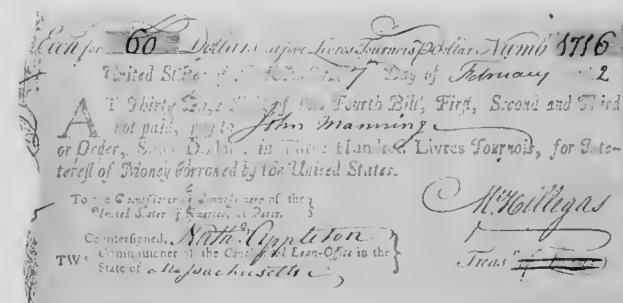 Exch for 60 Dollars at five Livres Tournois p Dollar. Numb 1716
United States of the 7 Day of February 2
AT Thirty Days of this Fourth Bill, First, Second and Third
not paid, pay to John Manning
or Order, Dollars, in Three Hundred Livres Tournois, for Inte-
rest of Money borrowed by the United States.
To the Commissioner or Commissioners of the
United States of America, at Paris.
Countersigned, Nath. Appleton
Commissioner of the Continental Loan-Office in the
State of Massachusetts
TW
M Hillegas
Treas